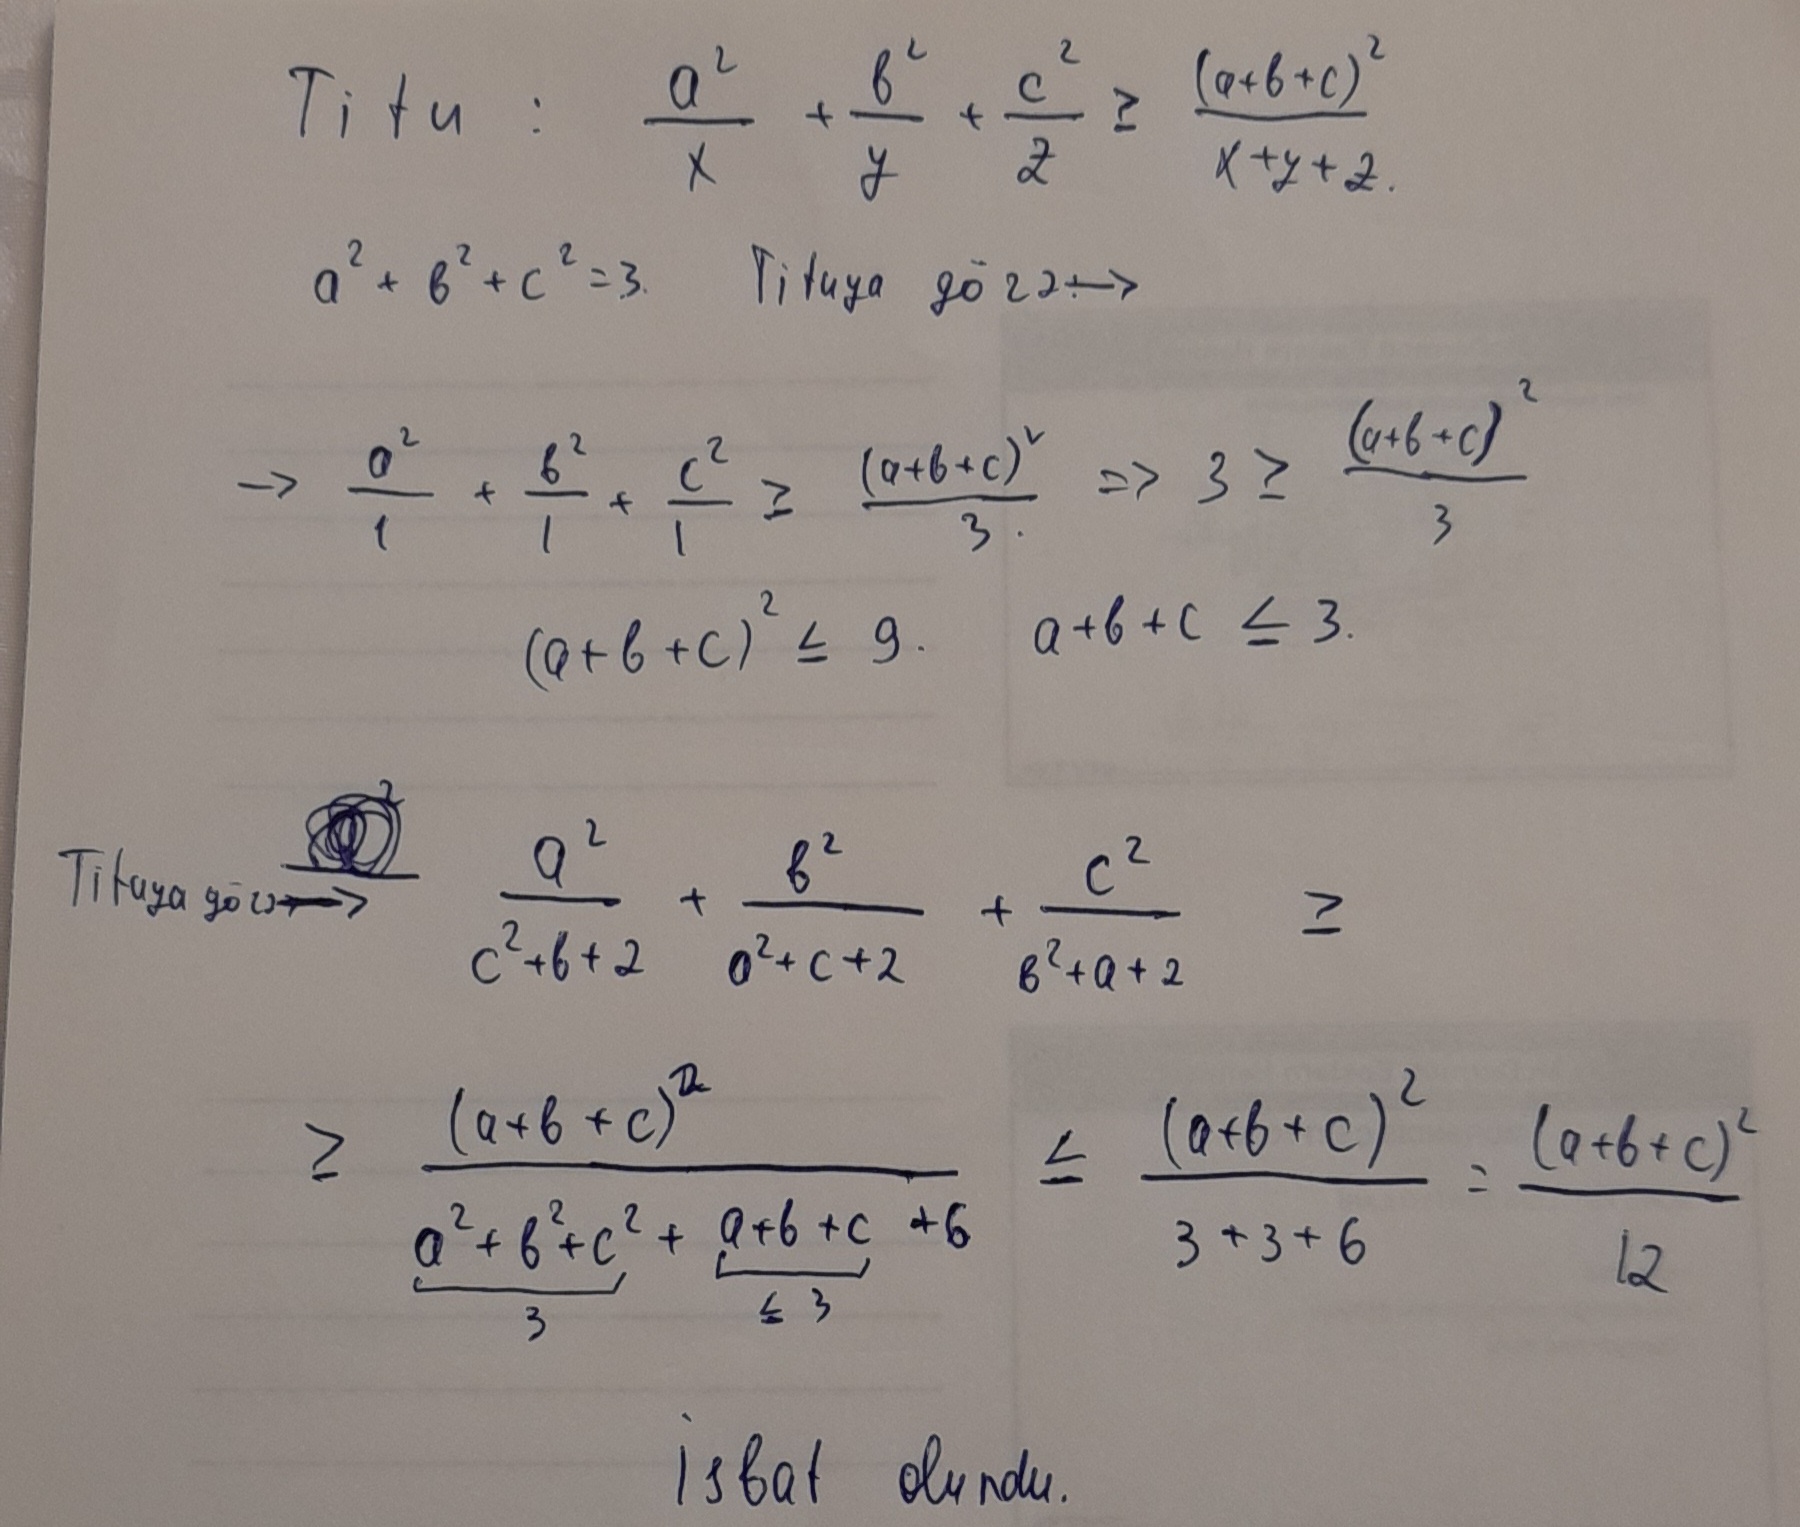 Titu : a²/x + b²/y + c²/z ≥ (a+b+c)²/x+y+z.
a²+b²+c²=3. Tituya görə→
→ a²/1 + b²/1 + c²/1 ≥ (a+b+c)²/3. => 3 ≥ (a+b+c)²/3
(a+b+c)² ≤ 9. a+b+c ≤ 3.
Tituya görə→ a²/c²+b+2 + b²/a²+c+2 + c²/b²+a+2 ≥
≥ (a+b+c)²/a²+b²+c²+a+b+c+6 ≤ (a+b+c)²/3+3+6 = (a+b+c)²/12
3 ≤ 3
İsbat olundu.